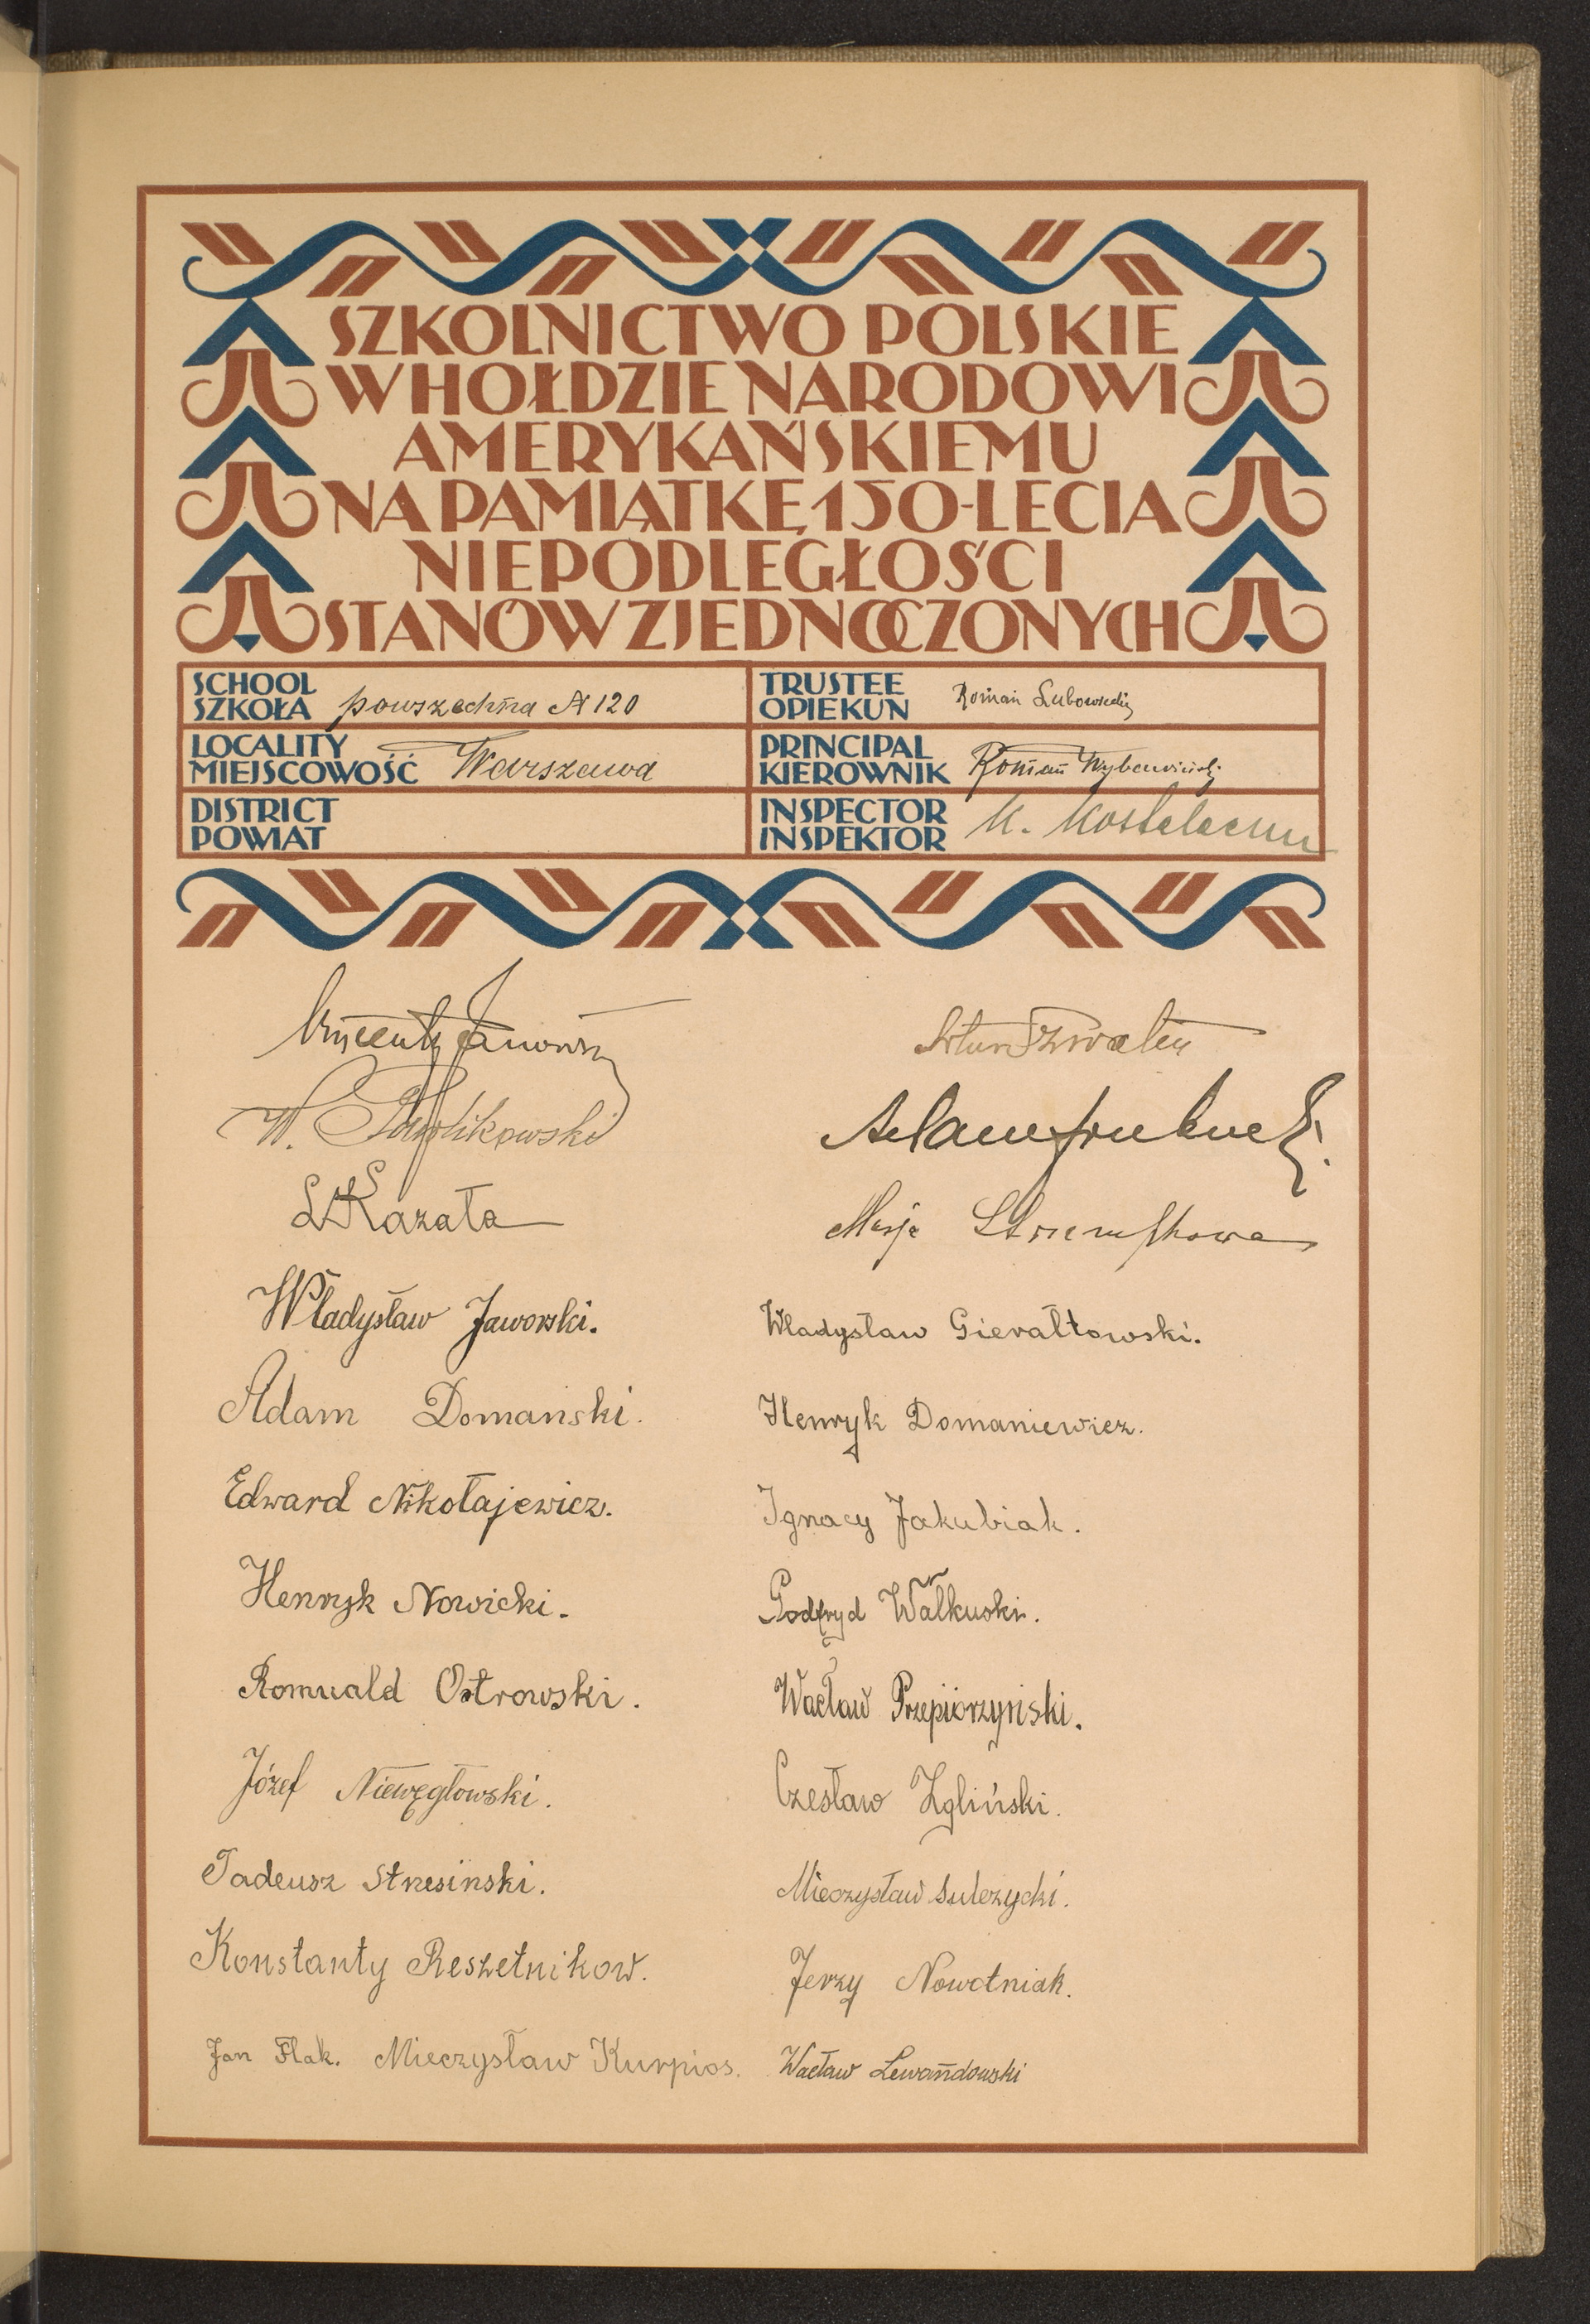 SZKOLNICTWO POLSKIE
W HOŁDZIE NARODOWI
AMERYKAŃSKIEMU
NA PAMIĄTKĘ 150-LECIA
NIEPODLEGŁOŚCI
STANÓW ZJEDNOCZONYCH
SCHOOL
SZKOŁA powszechna N 120
TRUSTEE
OPIEKUN Roman
LOCALITY
MIEJSCOWOŚĆ Warszawa
PRINCIPAL
KIEROWNIK Roman
DISTRICT
POWIAT
INSPECTOR
INSPEKTOR K.
Wincenty
W. Pawlikowski
Adam
Kazała
Marja
Władysław Jaworski.
Władysław Gierałtowski.
Adam Domanski.
Henryk Domaniewicz.
Edward Nikołajewicz.
Ignacy Jakubiak.
Henryk Nowicki.
Godfryd Walkuski.
Romuald Ostrowski.
Wacław Przepiórzyński.
Józef Niewęgłowski.
Czesław Zgliński.
Tadeusz Stresinski.
Mieczysław Sulczycki.
Konstanty Reszetnikow.
Jerzy Nowotniak.
Jan Flak. Mieczysław Kurpios.
Wacław Lewandowski